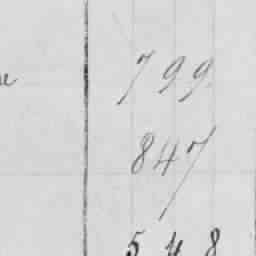 799
847
548